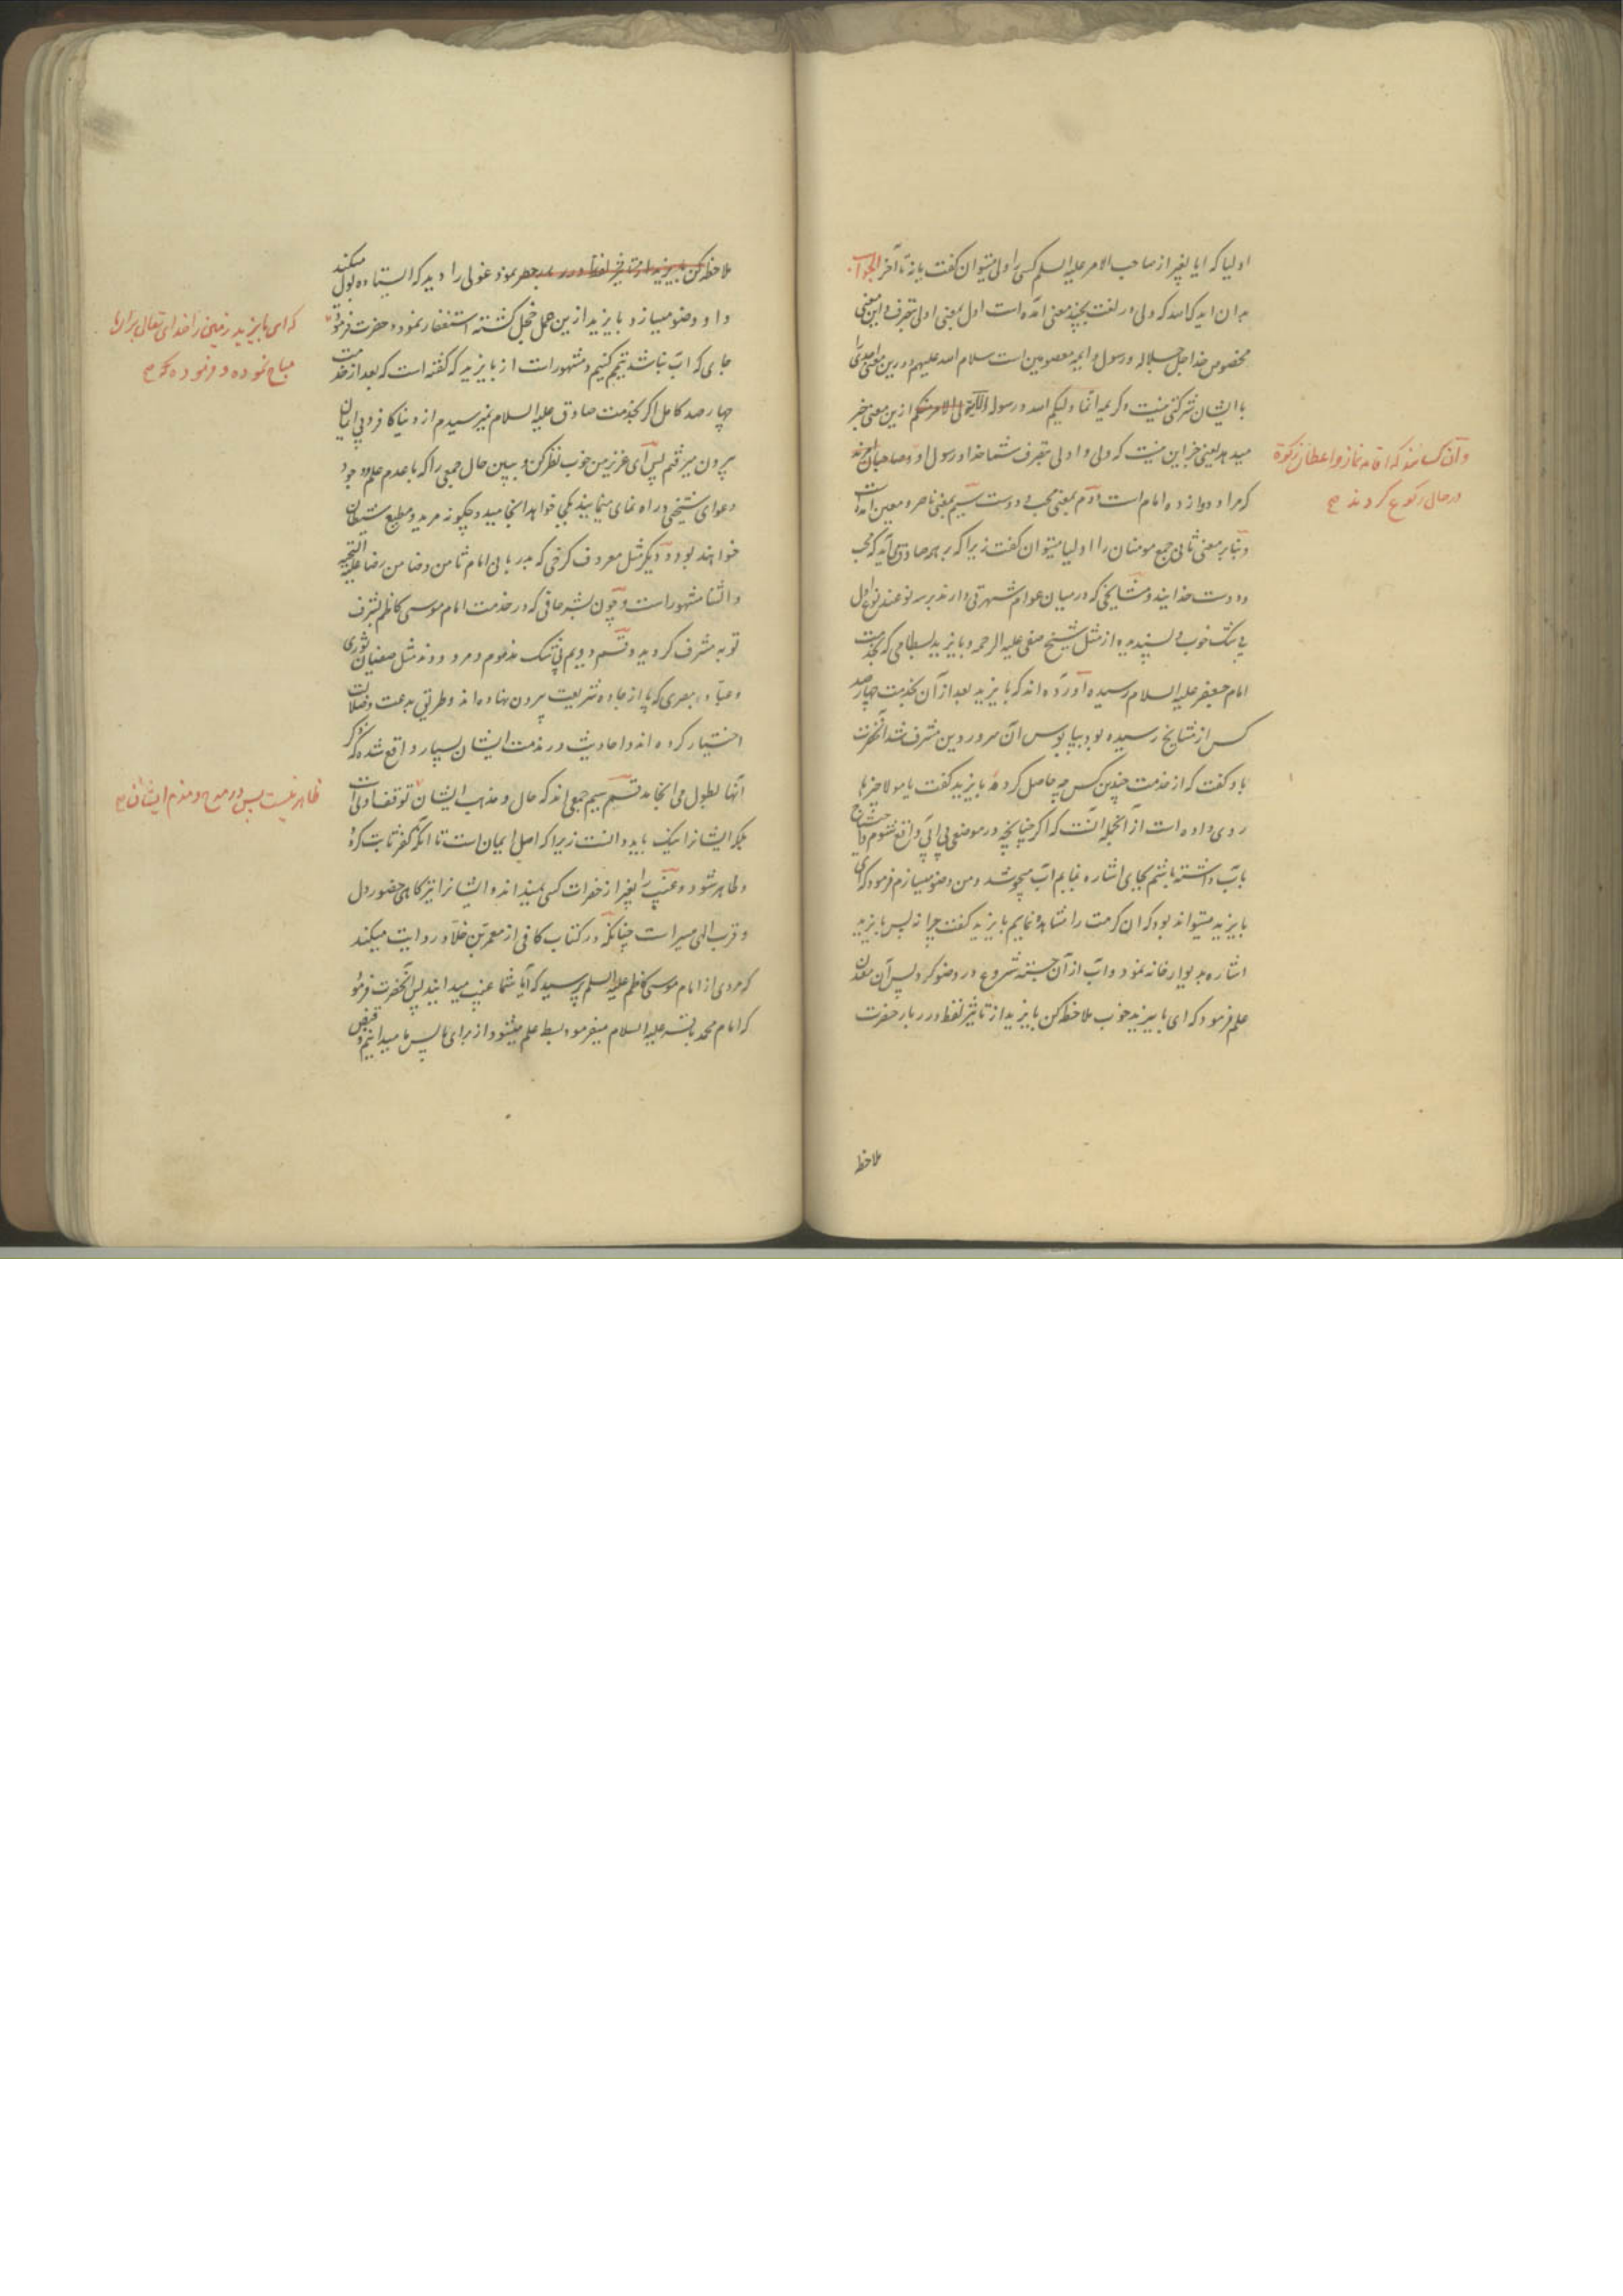 اولیا که ایا بغیر از صاحب الامر علیه السلم کسی را ولی میتوان کفت یا نه تا آخر الجواب
بدان ایدک اسد که ولی در لغت بچند معنی آمده است اول بمعنی اولی بتصرف و این معنی
مخصوص خدا جل جلاله و رسول و ایمه معصومین است سلام الله علیهم و درین معنی احدی را
با ایشان شرکتی نیست و کریمه انما ولیکم الله و رسوله ازین معنی خبر
میدهد یعنی جز این نیست که ولی و اولی بتصرف شما خدا و رسول او و صاحبان امرند
وآن کسانند که اقامه نماز و اعطای زکوة
در حالی رکوع کردند صح
که مراد دوازده امام است دوم بمعنی محب و دوست سیم بمعنی ناصر و معین آمده است
و بنابر معنی ثانی جمیع مومنان را اولیا میتوان کفت زیرا که بر همه صادق می آید که محب
و دوست خدایند و مشایخی که در میان عوام شهرتی دارند بر سه نوعند نوع اول
بی شک خوب و پسندیده از مثل شیخ صفی علیه الرحمه و بایزید بسطامی که بخدمت
امام جعفر علیه السلام رسیده آورده اند که بایزید بعد از آن که بخدمت چهار صد
کس از مشایخ رسیده بود بپابوس آن سرور دین مشرف شد آنحضرت
باو کفت که از خدمت چندین کس چه حاصل کرده بایزید کفت یا مولا چیزها
روی داده است از آنجمله آنست که اکر چنانچه در موضعی بی آبی واقع شوم و احتیاج
بآب داشته باشم بجای اشاره نمایم آب میجوشد و من وضو میسازم فرمود که ای
بایزید میتواند بود که آن کرامت را مشاهده نمایم بایزید کفت چرا نه پس بایزید
اشاره بدیوار خانه نمود و آب از آن جسته شروع در وضو کرد پس آن معدن
علم فرمود که ای بایزید خوب ملاحظه کن بایزید از تاثیر لفظ درربار حضرت
ملاحظه
ملاحظه کن بایزید از تاثیر لفظ درربار حضرت نمود غولی را دید که ایستاده بول میکند
و او وضو میسازد بایزید ازین عمل خجل کشته استغفار نمود و حضرت فرمود
که ای بایزید زمین را خدای تعالی برای ما
مباح نموده و فرموده که صح
جای که آب نباشد تیمم کنیم و مشهور است از بایزید که کفته است که بعد از خدمت
چهار صد کامل اکر بخدمت صادق علیه السلام نمیرسیدم از دنیا کافر و بی ایمان
بیرون میرفتم پس ای عزیز من خوب نظر کن و ببین حال جمعی را که با عدم علم وجود
دعوای شیخی و راه نمای مینمایند بکجا خواهد انجامید و چکونه مرید و مطیع شیطان
خواهند بود و دیکر مثل معروف کرخی که بدربانی امام ثامن و ضامن رضا علیه التحیه
و الثنا مشهور است و چون بشر حافی که در خدمت امام موسی کاظم بشرف
توبه مشرف کردید و قسم دویم بی شک مذموم و مردودند مثل سفیان ثوری
و عباد بصری که پا از جاده شریعت بیرون نهاده اند و طریق بدعت و ضلالت
اختیار کرده اند و احادیث در مذمت ایشان بسیار واقع شده که ذکر
آنها بطول می انجامد قسم سیم جمعی اند که حال و مذهب ایشان توقف اولی است
ظاهر نیست پس در مدح و مذم ایشان صح
بلکه ایشانرا نیک باید دانست زیرا که اصل ایمان است تا آنکه کفر ثابت کردد
و ظاهر شود و غیب را بغیر از حضرات کسی نمیداند و ایشانرا نیز کاهی حضور دل
و قرب الهی میسر است چنانکه در کتاب کافی از معمر بن خلاد روایت میکند
که مردی از امام موسی کاظم علیه السلم پرسید که آیا شما غیب میدانید پس آنحضرت فرمود
که امام محمد باقر علیه السلام میفرمود بسط علم میشود از برای ما پس ما میدانیم و قبض